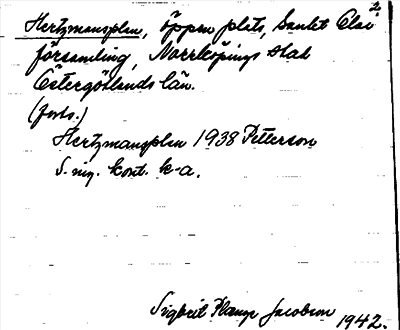 2
Hertzmansplan, öppen plats, Sankt Olai
församling, Norrköpings stad
Östergötlands län.
(forts.)
Hertzmansplan 1938 Petterson
S. ing. kont. k-a.
Sigbrit Plænge Jacobson 1942.